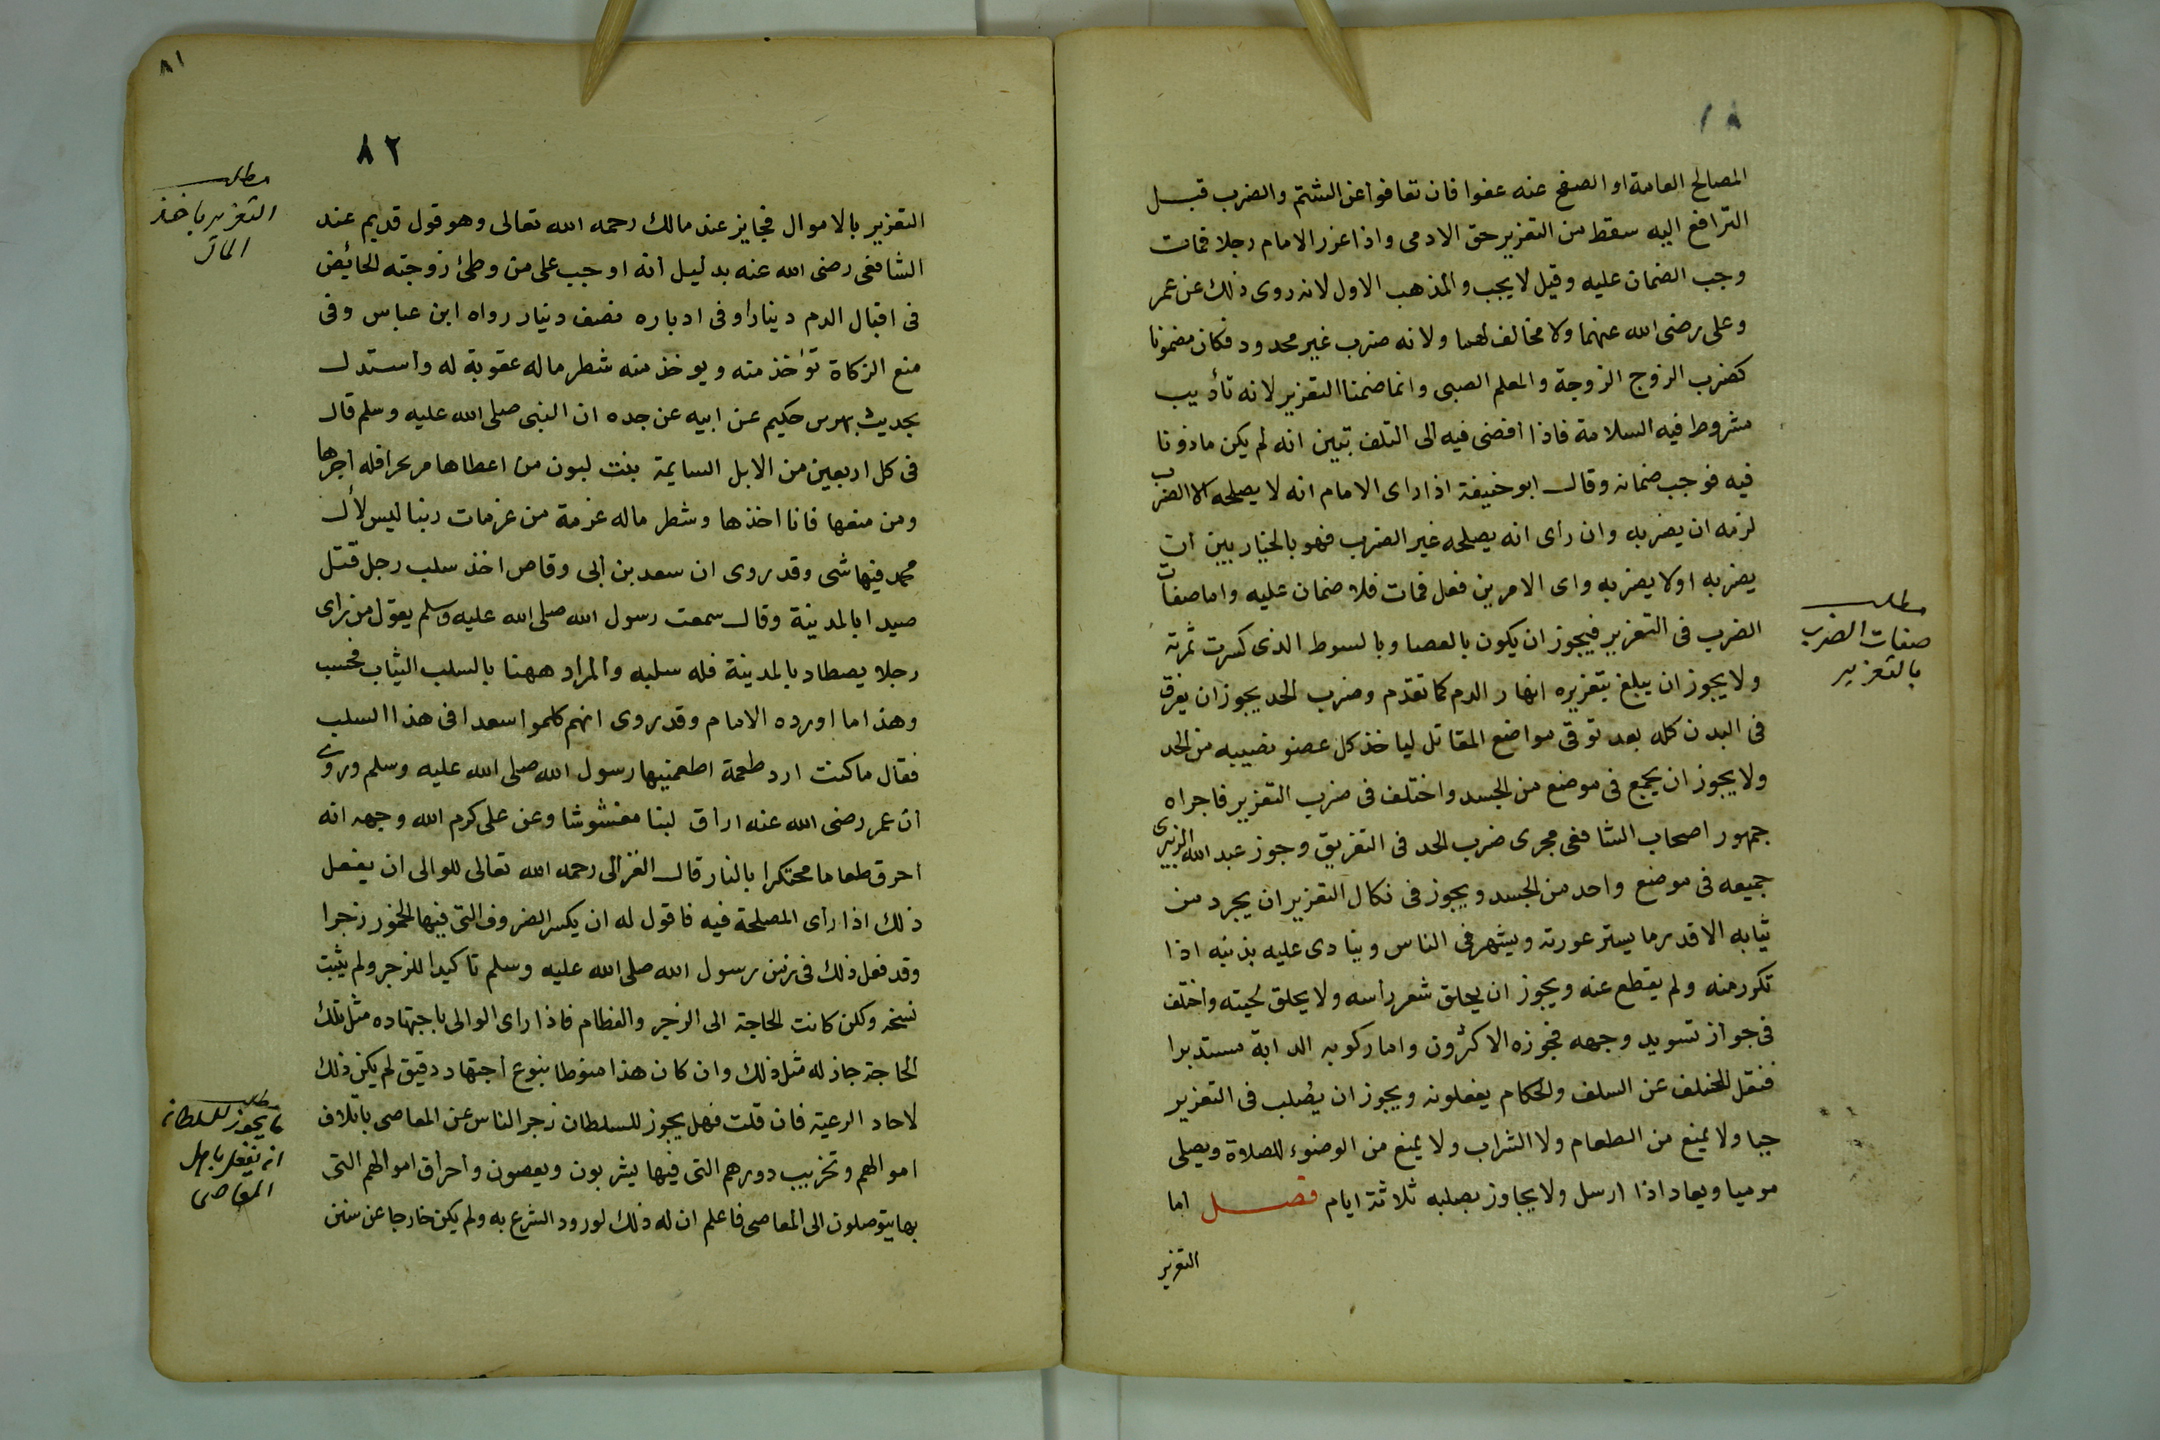 ٨١
المصالح العامة او الصفح عنه عفوا فان تعافوا عن الشتم والضرب قبل
الترافع اليه سقط من التعزير حق الادمى واذا عزر الامام رجلا فمات
وجب الضمان عليه وقيل لا يجب والمذهب الاول لانه روى ذلك عن عمر
وعلى رضى الله عنهما ولا مخالف لهما ولانه ضرب غير محدود فكان مضمونا
كضرب الزوج الزوجة والمعلم الصبى وانما ضمنا التعزير لانه تأديب
مشروط فيه السلامة فاذا افضى فيه الى التلف تبين انه لم يكن ماذونا
فيه فوجب ضمانه وقال ابو حنيفة اذا راى الامام انه لا يصلحه الا الضرب
لزمه ان يضربه وان رأى انه يصلحه غير الضرب فهو بالخيار بين ان
يضربه او لا يضربه واى الامرين فعل فمات فلا ضمان عليه واما صفات
الضرب فى التعزير فيجوز ان يكون بالعصا وبالسوط الذى كسرت ثمرته
ولا يجوز ان يبلغ بتعزيره انهار الدم كما تقدم وضرب الحد يجوز ان يفرق
فى البدن كله بعد توقى مواضع المقاتل لياخذ كل عضو نصيبه من الحد
ولا يجوز ان يجمع فى موضع من الجسد واختلف فى ضرب التعزير فاجراه
جمهور اصحاب الشافعى مجرى ضرب الحد فى التفريق وجوز عبد الله الزبيرى
جميعه فى موضع واحد من الجسد ويجوز فى نكال التعزير ان يجرد من
ثيابه الا قدر ما يستر عورته ويشهر فى الناس وينادى عليه بذنبه اذا
تكرر منه ولم يقطع عنه ويجوز ان يحلق شعر رأسه ولا يحلق لحيته واختلف
فى جواز تسويد وجهه فجوزه الاكثرون واما ركوبه الدابة مستدبرا
فنقل المخلف عن السلف والحكام يفعلونه ويجوز ان يصلب فى التعزير
حيا ولا يمنع من الطعام ولا الشراب ولا يمنع من الوضوء للصلاة ويصلى
موميا ويعاد اذا ارسل ولا يجاوز بصلبه ثلاثة ايام فصل اما
التعزير
مطلب
صفات الضرب
بالتعزير
٨١
٨٢
التعزير بالاموال فجايز عند مالك رحمه الله تعالى وهو قول قديم عند
الشافعى رضى الله عنه بدليل انه اوجب على من وطئ زوجته الحائض
فى اقبال الدم دينارا وفى ادباره نصف دينار رواه ابن عباس وفى
منع الزكاة تؤخذ منه ويوخذ منه شطر ماله عقوبة له واستدل
بحديث بهرس حكيم عن ابيه عن جده ان النبى صلى الله عليه وسلم قال
فى كل اربعين من الابل السايمة بنت لبون من اعطاها مرتجرا فله اجرها
ومن منعها فانا اخذها وشطر ماله عزمة من عزمات ربنا ليس لأل
محمد فيها شى وقد روى ان سعد بن أبى وقاص اخذ سلب رجل قتل
صيدا بالمدينة وقال سمعت رسول الله صلى الله عليه وسلم يقول من راى
رجلا يصطاد بالمدينة فله سلبه والمراد ههنا بالسلب الثياب فحسب
وهذا ما اورده الامام وقد روى انهم كلموا سعدا فى هذا السلب
فقال ما كنت ارد طعمة اطعمنيها رسول الله صلى الله عليه وسلم وروى
ان عمر رضى الله عنه اراق لبنا مغشوشا وعن على كرم الله وجهه انه
احرق طعاما محتكرا بالنار قال الغزالى رحمه الله تعالى للوالى ان يفعل
ذلك اذا رأى المصلحة فيه فاقول له ان يكسر الضروف التى فيها الخمور زجرا
وقد فعل ذلك فى زمن رسول الله صلى الله عليه وسلم تاكيدا للزجر ولم يثبت
نسخه ولكن كانت الحاجة الى الزجر والفطام فاذا راى الوالى باجتهاده مثل تلك
الحاجة جاز له مثل ذلك وان كان هذا منوطا بنوع اجتهاد دقيق لم يكن ذلك
لاحاد الرعية فان قلت فهل يجوز للسلطان زجر الناس عن المعاصى باتلاف
اموالهم وتخريب دورهم التى فيها يشربون ويعصون واحراق اموالهم التى
بها يتوصلون الى المعاصى فاعلم ان له ذلك لورود الشرع به ولم يكن خارجا عن سنن
مطلب
التعزير باخذ
المال
مطلب
ما يجوز للسلطان
ان يفعل باهل
المعاصى